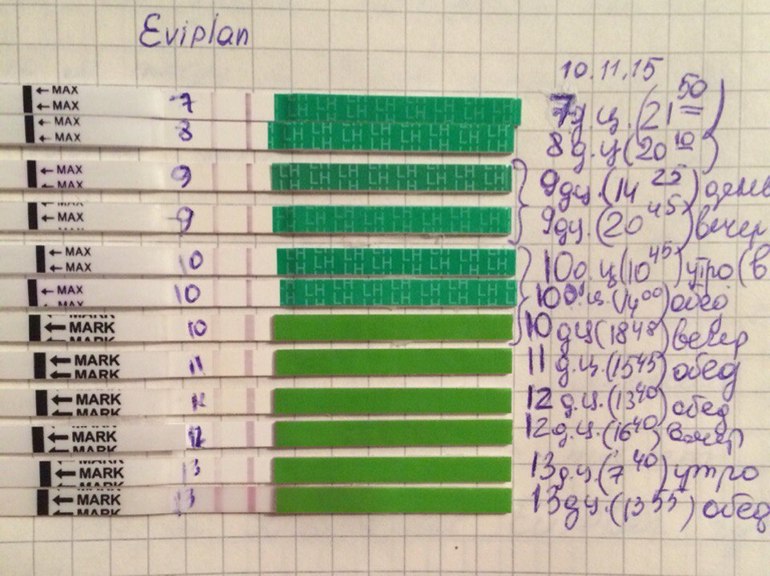 Eviplan
10.11.15
← MAX
← MAX
7
LH LH LH LH LH LH
7 д.ц. (21 50)
← MAX
8
LH LH LH LH LH LH
8 д.ц (20 10)
← MAX
9
LH LH LH LH LH LH
9 дц. (14 25) день
← MAX
9
LH LH LH LH LH LH
9 дц. (20 45) вечер
← MAX
← MAX
10
LH LH LH LH LH LH
10 д.ц (10 45) утро (в
← MAX
10
LH LH LH LH LH LH
10 д.ц. (14 00) обед
← MARK
10
10 дц (18 48) вечер
← MARK
11
11 д.ц. (15 45) обед
← MARK
12
12 д.ц. (13 40) обед
← MARK
12
12 д.ц. (16 40) вечер
← MARK
13
13 д.ц (7 40) утро
← MARK
13
13 дц. (13 55) обед